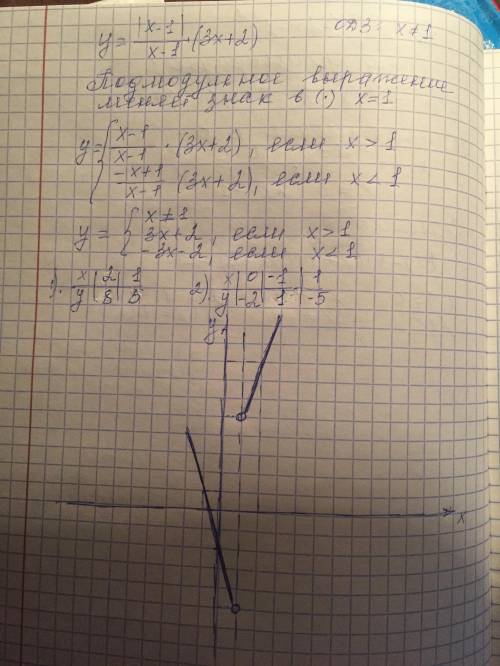 y = |x-1|/(x-1) · (3x+2) ОДЗ: x≠1
Подмодульное выражение
меняет знак в (·) x=1
y = { (x-1)/(x-1) · (3x+2), если x > 1
(-x+1)/(x-1) (3x+2), если x < 1
x≠1
y = { 3x+2, если x > 1
-3x-2, если x < 1
1). x | 2 | 1 2). x | 0 | -1 | 1
y | 8 | 5 y | -2 | 1 | -5
y
x